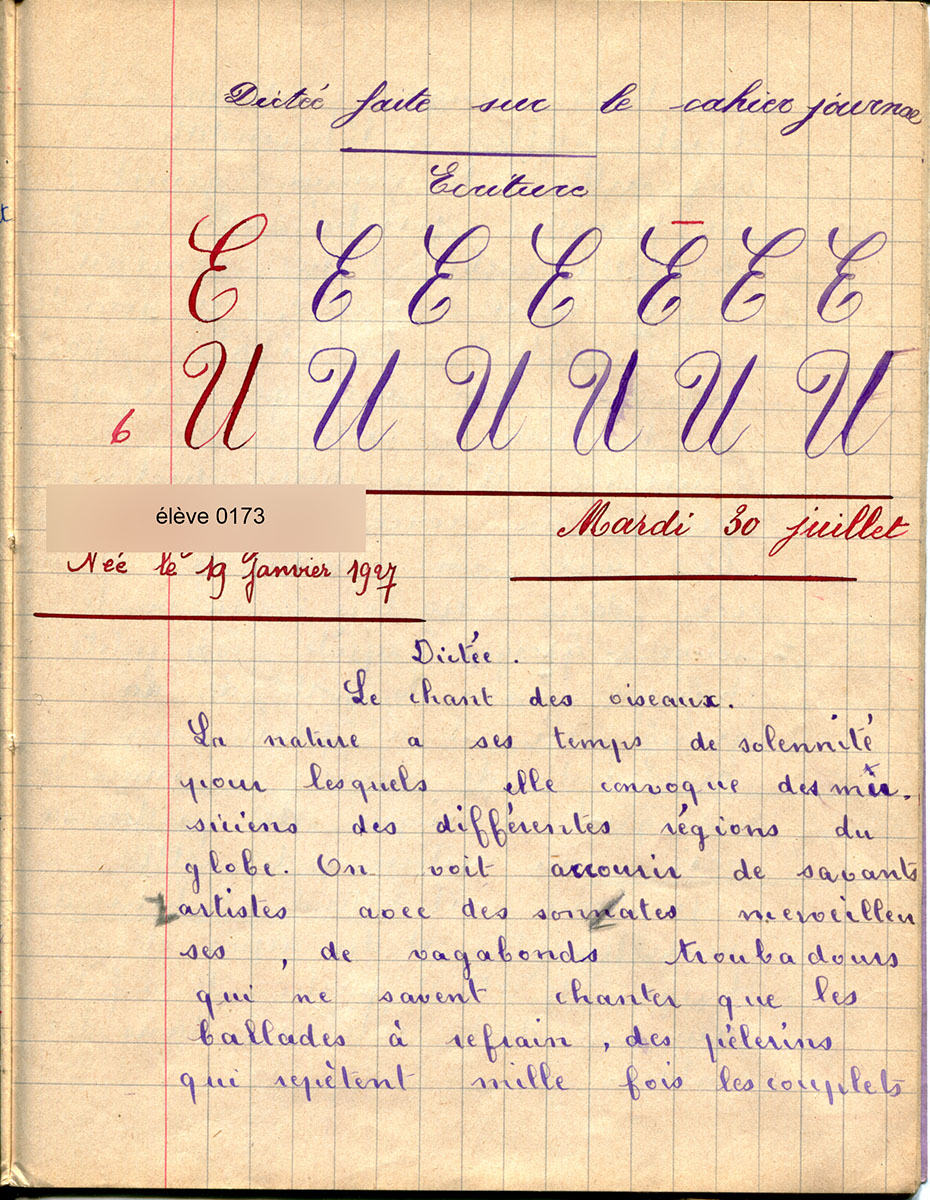 Dictée faite sur le cahier journal
Ecriture
E E E E E E E
U U U U U U
6
élève 0173
Mardi 30 juillet
Née le 19 Janvier 1927
Dictée.
Le chant des oiseaux.
La nature a ses temps de solennité
pour lesquels elle convoque des mu-
siciens des différentes régions du
globe. On voit accourir de savants
artistes avec des sonnates merveilleu
ses, de vagabonds troubadours
qui ne savent chanter que les
ballades à refrain, des pélerins
qui repètent mille fois les couplets